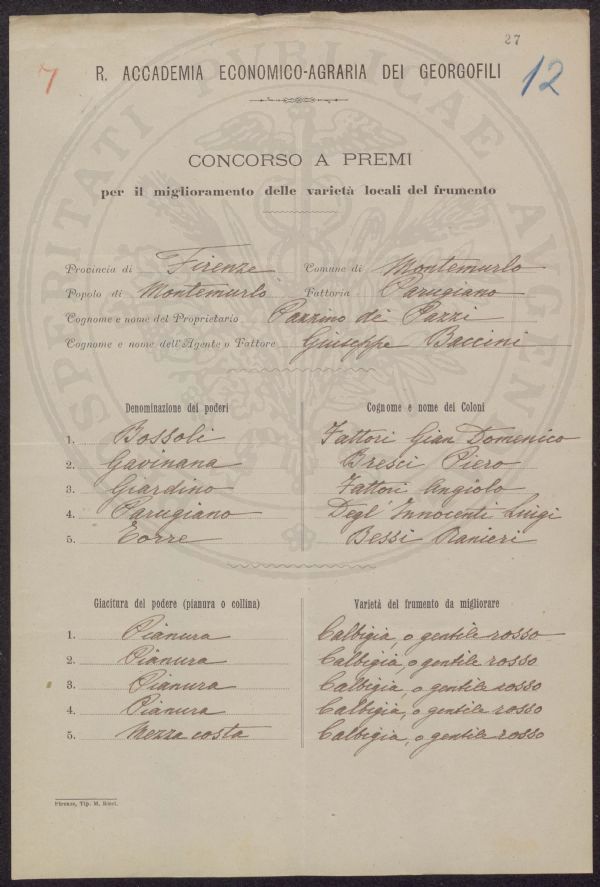 27
7
12
R. ACCADEMIA ECONOMICO-AGRARIA DEI GEORGOFILI
CONCORSO A PREMI
per il miglioramento delle varietà locali del frumento
Provincia di Firenze Comune di Montemurlo
Popolo di Montemurlo Fattoria Parugiano
Cognome e nome del Proprietario Pazzino de' Pazzi
Cognome e nome dell'Agente o Fattore Giuseppe Baccini
Denominazione dei poderi Cognome e nome dei Coloni
1. Bossoli Fattori Gian Domenico
2. Gavinana Bresci Piero
3. Giardino Fattori Angiolo
4. Parugiano Degl'Innocenti Luigi
5. Torre Bessi Ranieri
Giacitura del podere (pianura o collina) Varietà del frumento da migliorare
1. Pianura Calbigia, o gentile rosso
2. Pianura Calbigia, o gentile rosso
3. Pianura Calbigia, o gentile rosso
4. Pianura Calbigia, o gentile rosso
5. Mezza costa Calbigia, o gentile rosso
Firenze, Tip. M. Ricci.
PROSPERITATI PUBLICAE AUGENDAE